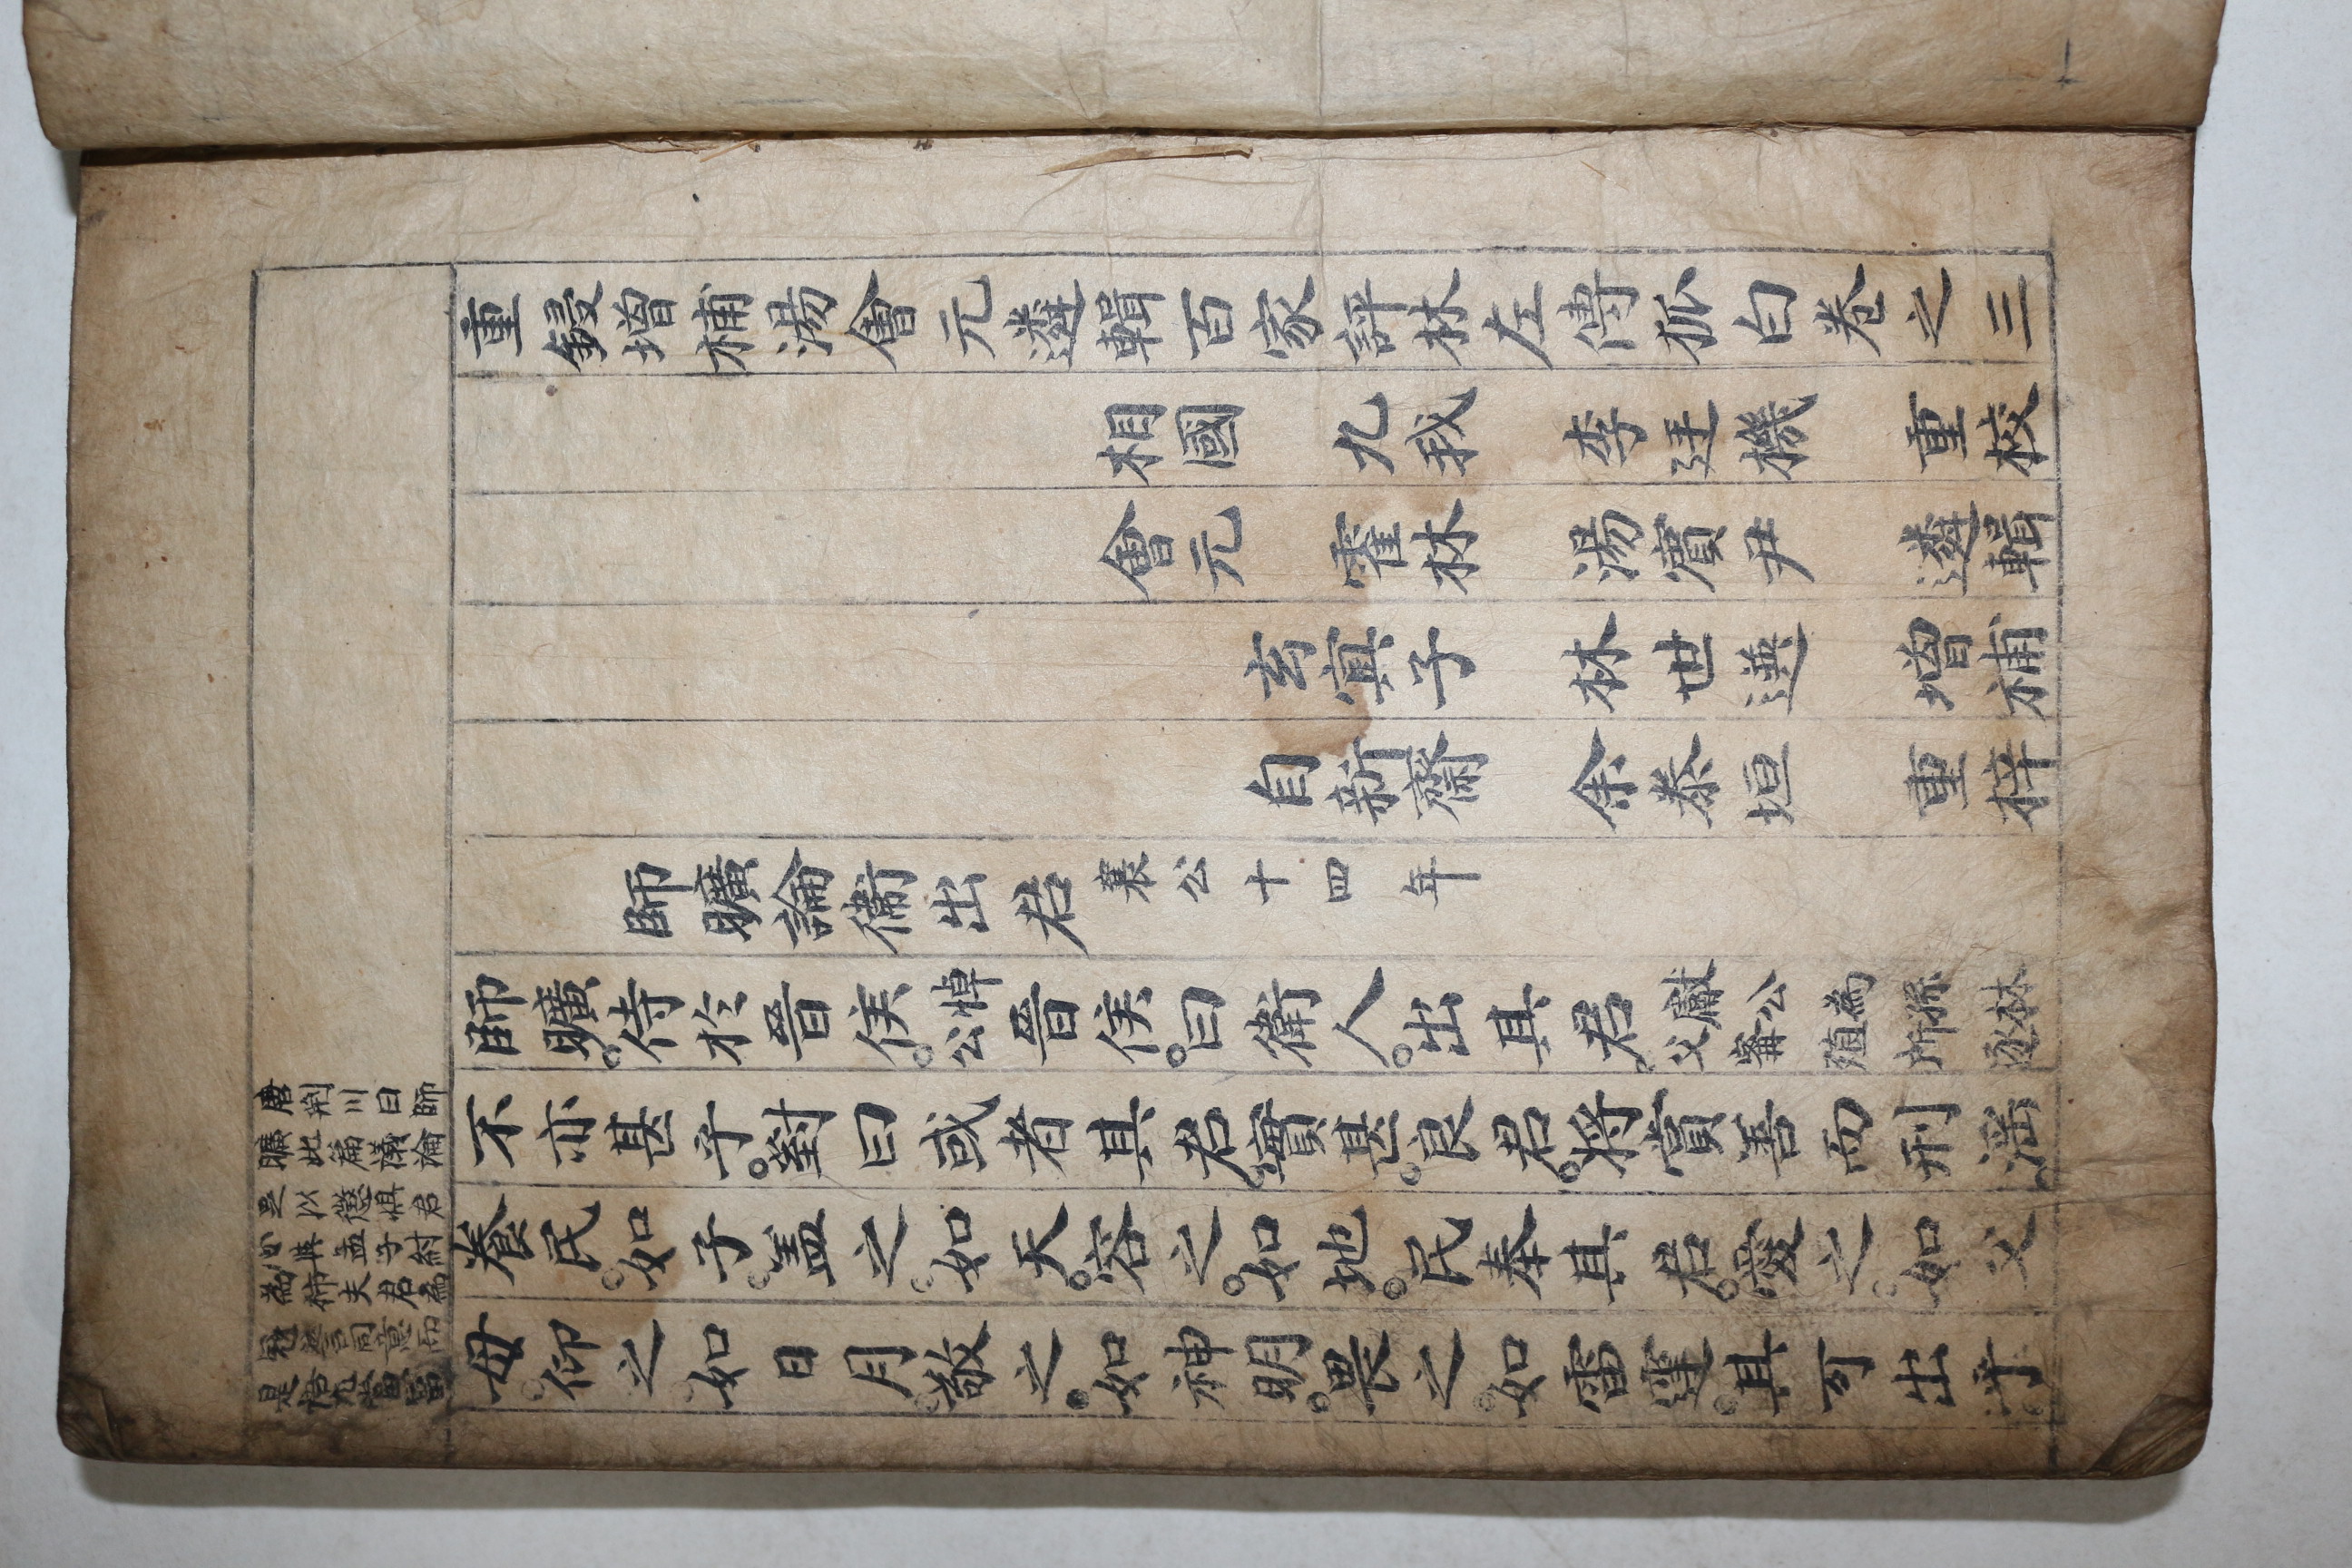 重鋟增補湯會元遴輯百家評林左傳狐白卷之三
相國 九我 李廷機 重校
會元 霍林 湯賓尹 遴輯
玄真子 林世選 增補
自新齋 余泰垣 重梓
師曠論衛出君 襄公十四年
師曠侍於晉侯悼公晉侯曰衛人出其君獻公為孫林父寗殖所逐
不亦甚乎對曰或者其君實甚良君將賞善而刑淫
養民如子盖之如天容之如地民奉其君愛之如父
母仰之如日月敬之如神明畏之如雷霆其可出乎
唐荊川曰師
曠此篇議論
足以懲惧君
心與孟子紂
為 夫君為
同意而
是